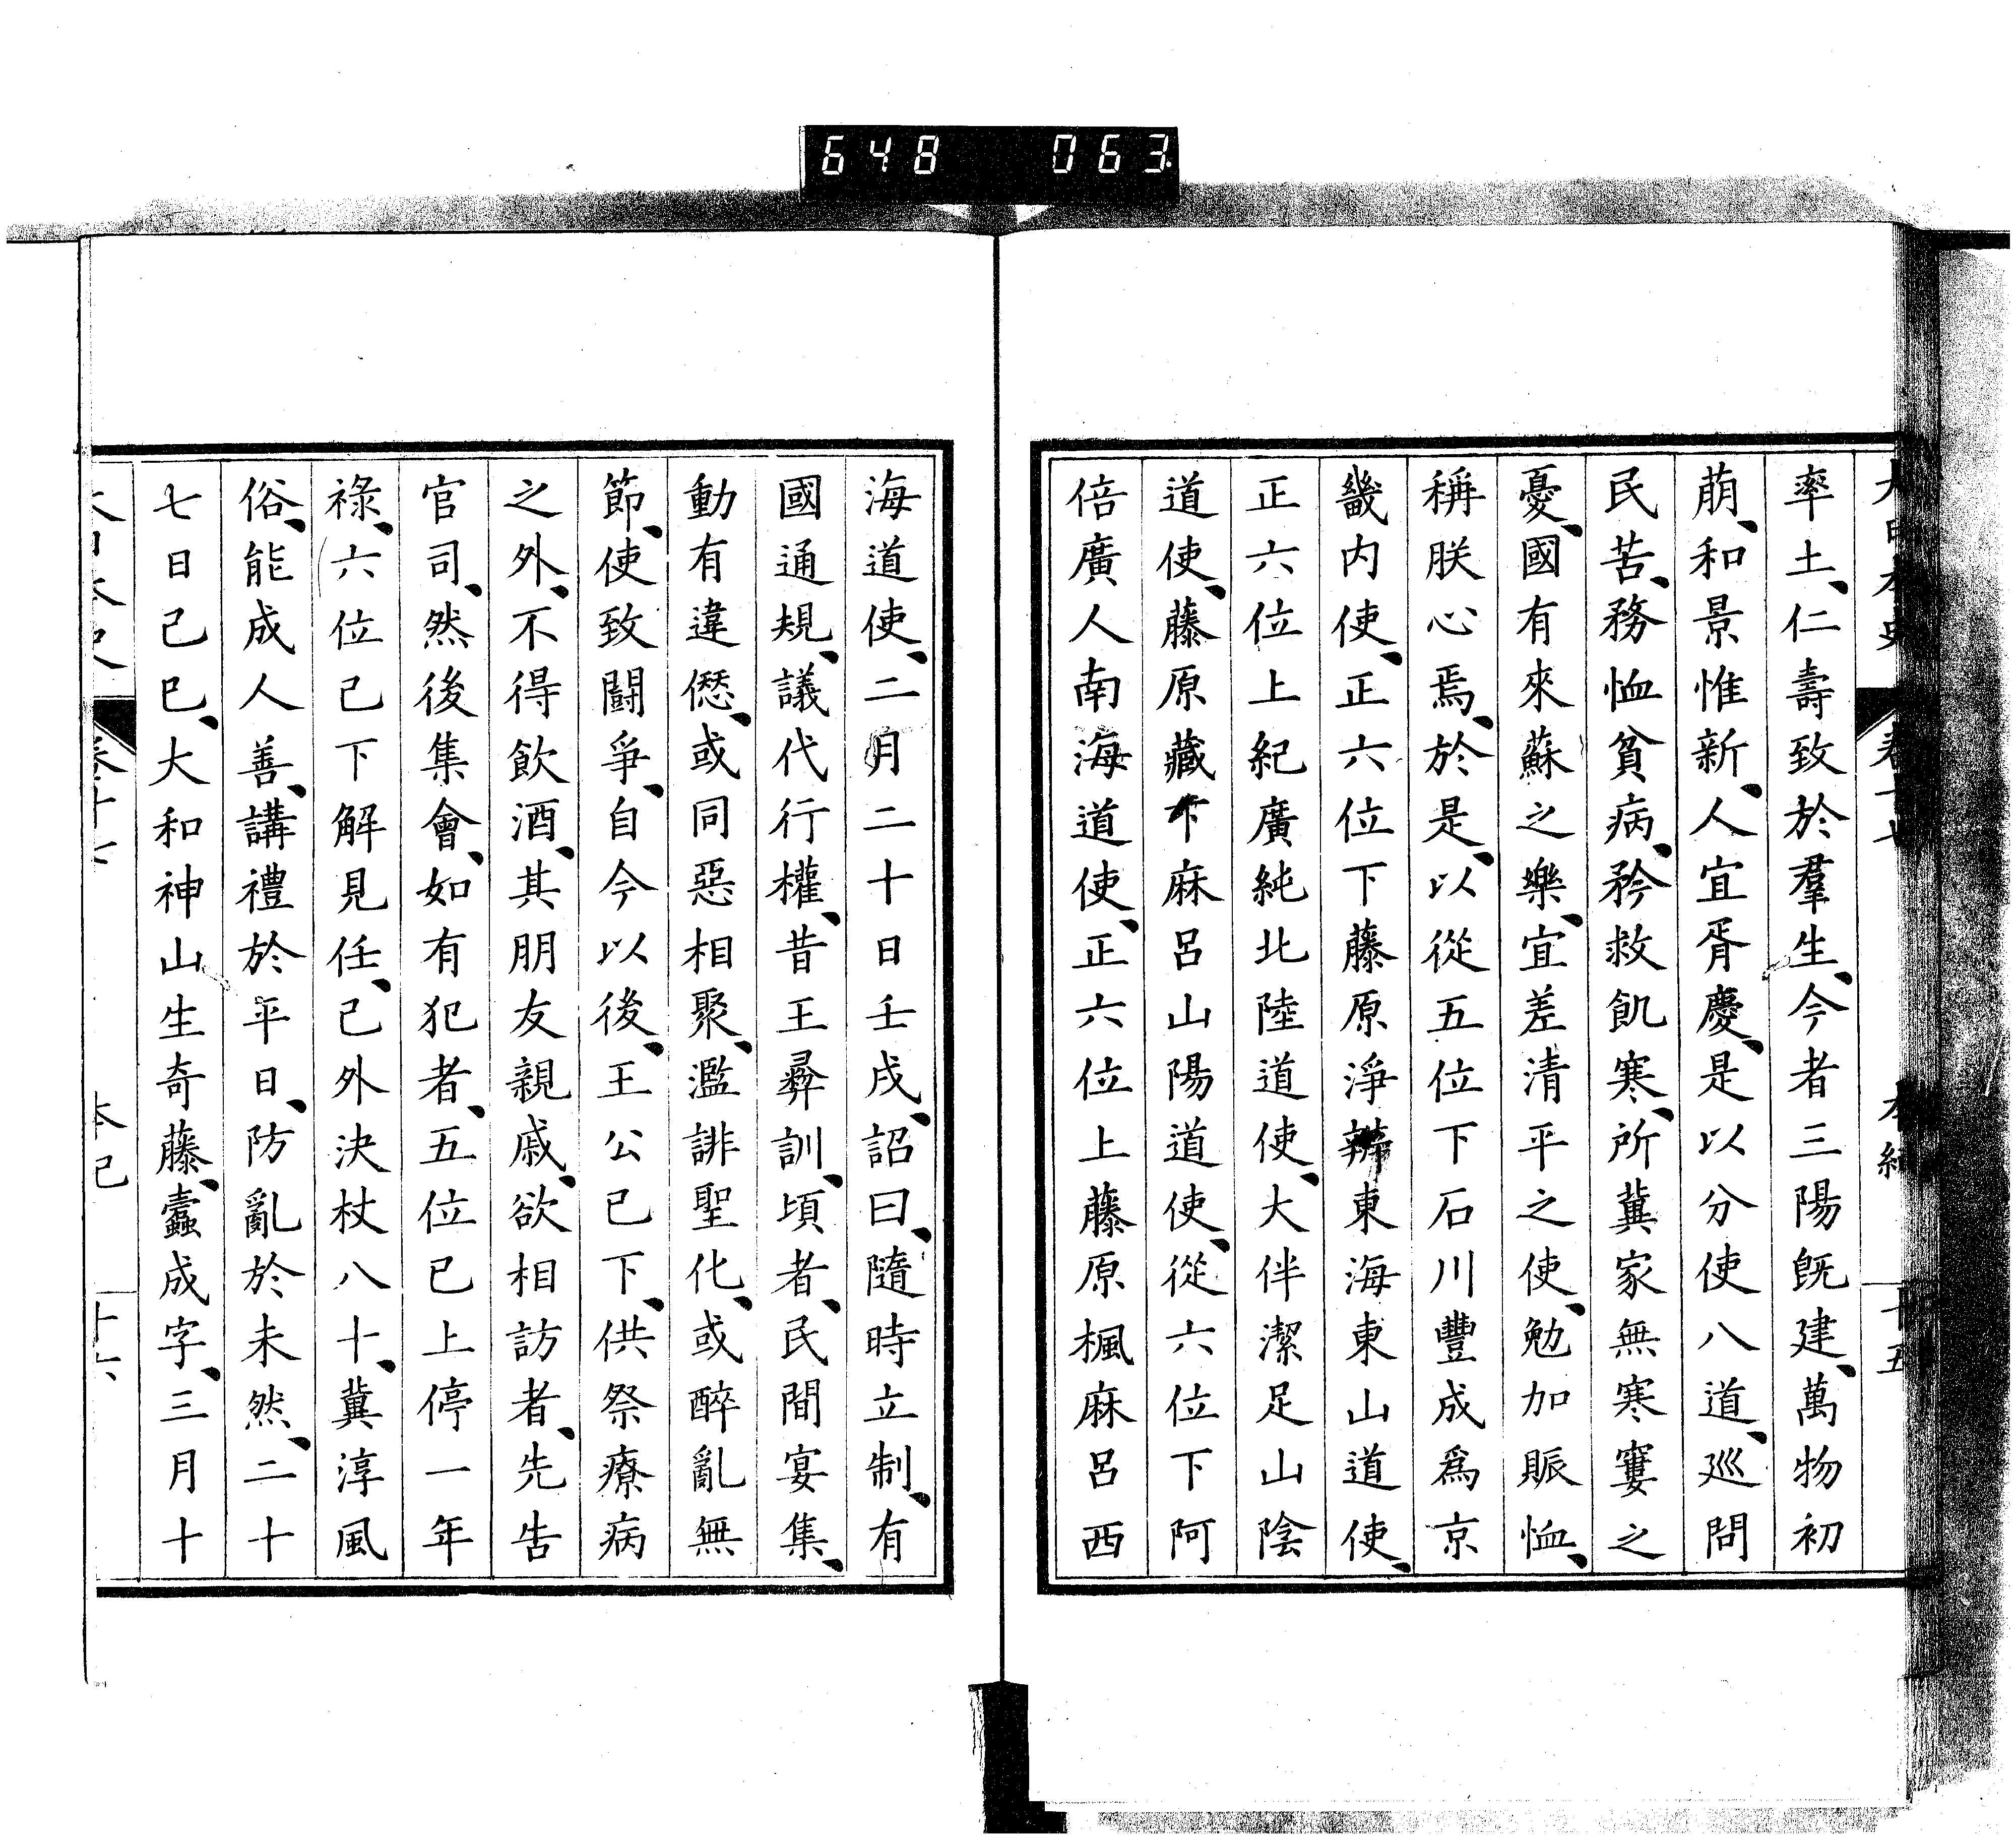 648 063
大日本史 卷十七 本紀 十五
率土、仁壽致於羣生、今者三陽旣建、萬物初
萠、和景惟新、人宜胥慶、是以分使八道、廵問
民苦、務恤貧病、矜救飢寒、所冀家無寒窶之
憂、國有來蘇之樂、宜差清平之使、勉加賑恤、
稱朕心焉、於是、以從五位下石川豐成爲京
畿内使、正六位下藤原淨辨東海東山道使、
正六位上紀廣純北陸道使、大伴潔足山陰
道使、藤原藏下麻呂山陽道使、從六位下阿
倍廣人南海道使、正六位上藤原楓麻呂西
海道使、二月二十日壬戌、詔曰、隨時立制、有
國通規、議代行權、昔王彝訓、頃者、民間宴集、
動有違僁、或同惡相聚、濫誹聖化、或醉亂無
節、使致鬪爭、自今以後、王公已下、供祭療病
之外、不得飲酒、其朋友親戚、欲相訪者、先告
官司、然後集會、如有犯者、五位已上停一年
祿、六位己下解見任、己外決杖八十、冀淳風
俗、能成人善、講禮於平日、防亂於未然、二十
七日己巳、大和神山生奇藤、蠧成字、三月十
大日本史 卷十七 本紀 十六